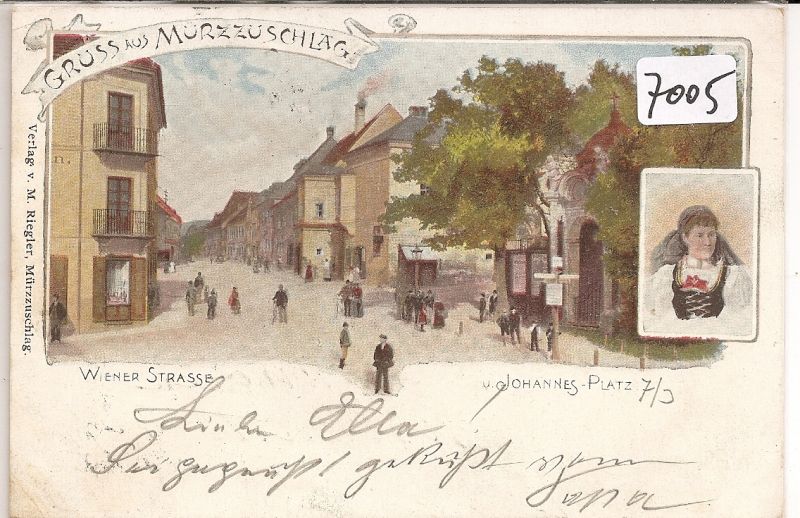 GRÜSS AUS MÜRZZUSCHLAG.
7005
n.
Verlag v. M. Riegler, Mürzzuschlag.
WIENER STRASSE
U. JOHANNES-PLATZ
7/3
Liebe Ella
Sei gegrüßt! geküßt vom
Papa